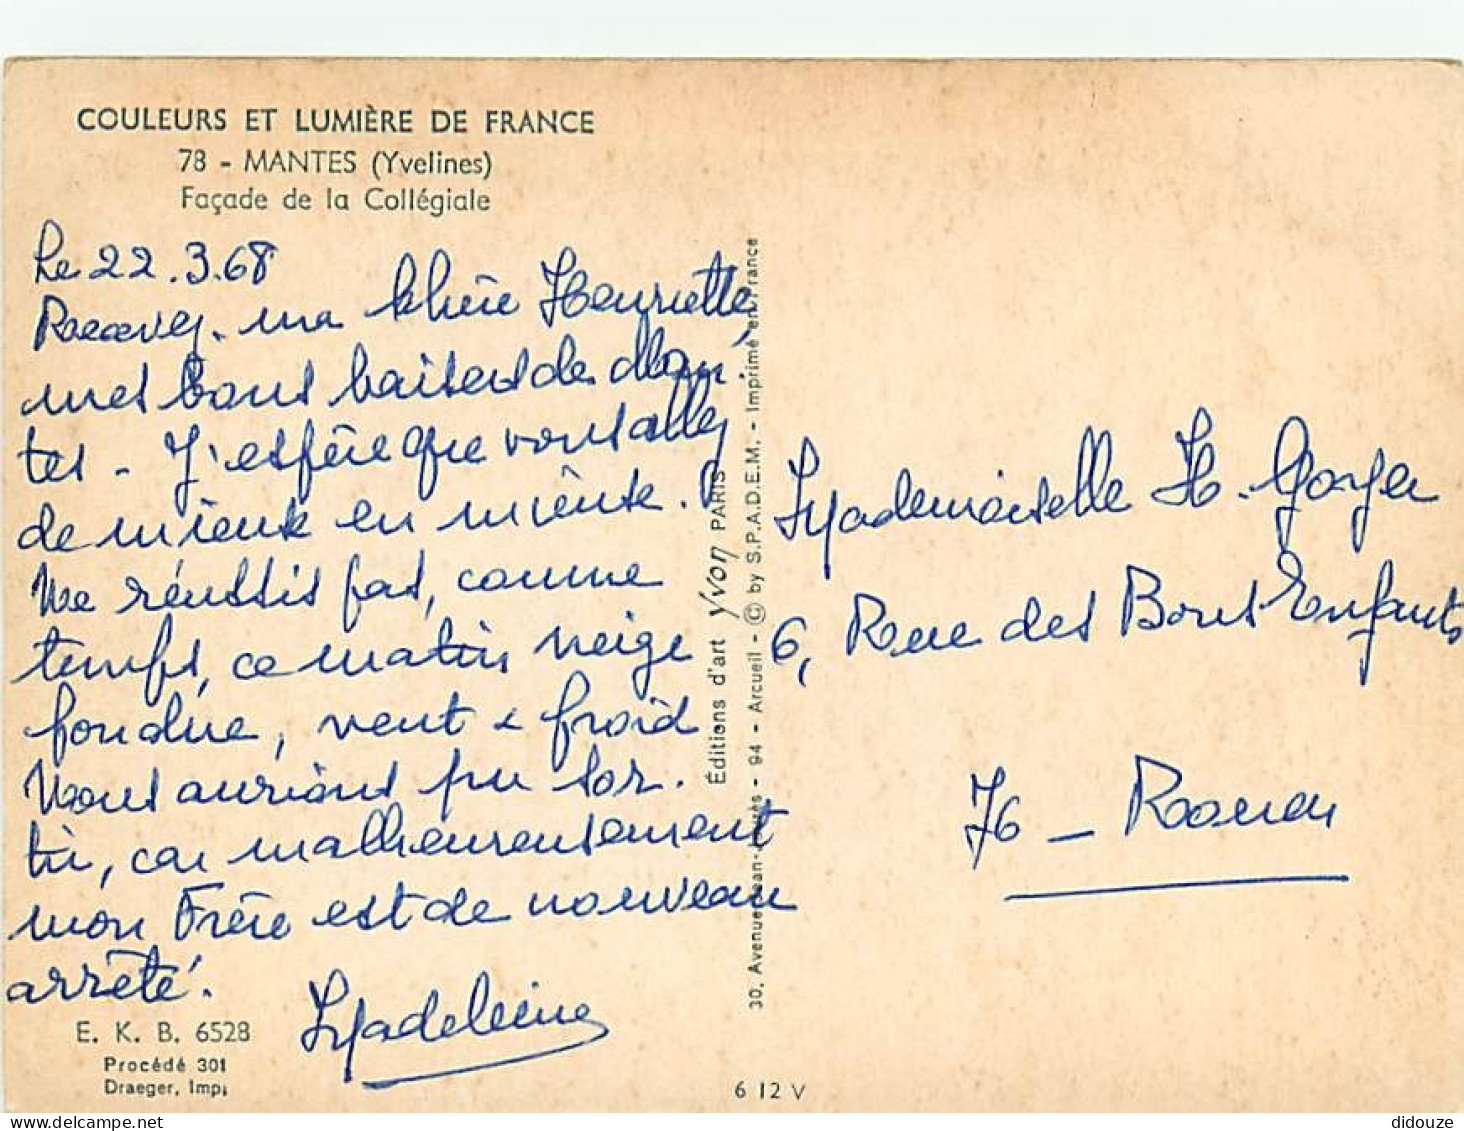 COULEURS ET LUMIÈRE DE FRANCE
78 - MANTES (Yvelines)
Façade de la Collégiale
Le 22.3.68
Recevez. ma chère Henriette,
mes bons baisers de Man.
tes - J'espère que vous allez
de mieux en mieux.
Ne réussis pas, comme
temps, ce matin neige
fondue, vent & froid
Nous aurions pu sor.
tir, car malheureusement
mon Frère est de nouveau
arrêté.
Madeleine
E. K. B. 6528
Procédé 301
Draeger, Imp.
Éditions d'art Yvon PARIS
30, Avenue Jean-Jaurès - 94 - Arcueil - © by S.P.A.D.E.M. - Imprimé en France
6 12 V
Mademoiselle H.
6, Rue des Bons Enfants
76 - Rouen
didouze